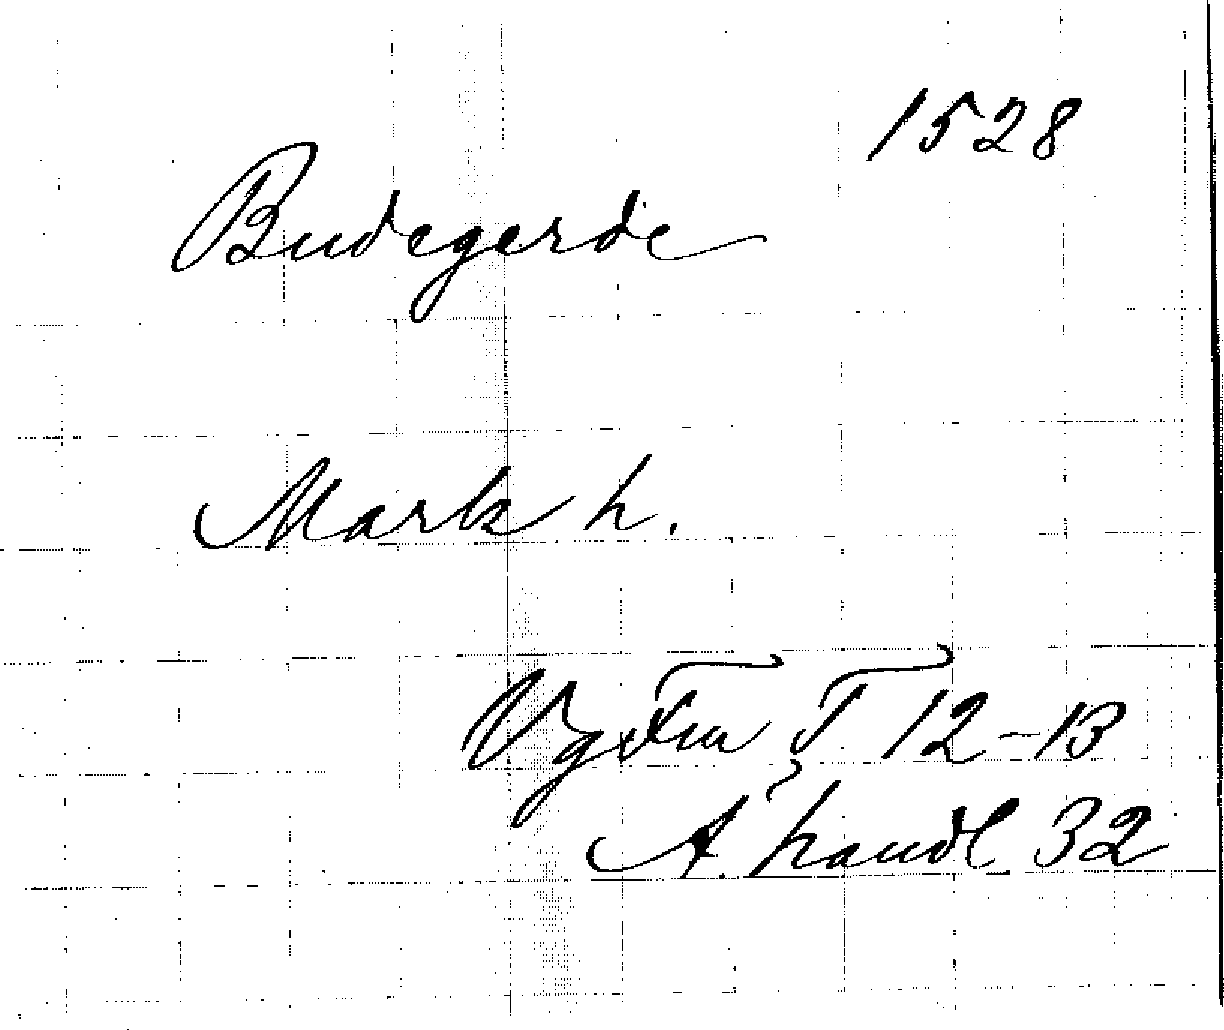 1528
Budegerde
Mark h.
Vg Fm T 12-13
A. handl 32